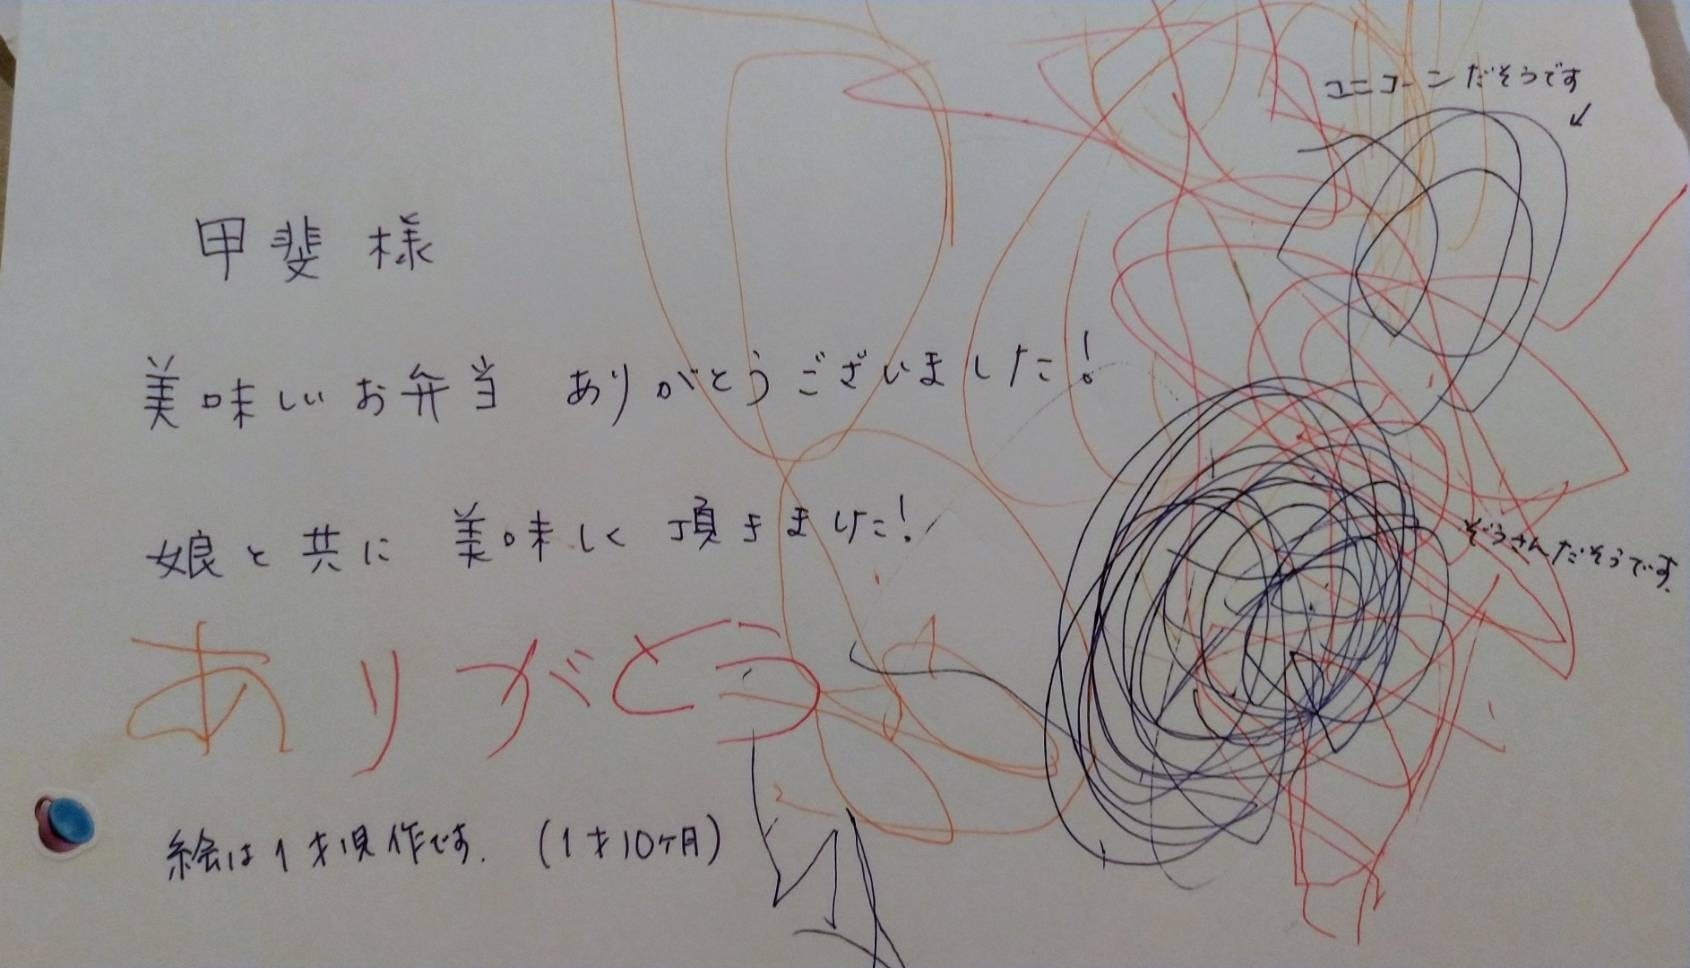 甲斐 様
美味しいお弁当 ありがとうございました!
娘と共に 美味しく 頂きました!
ありがとう
絵は1才児作です. (1才10ヶ月)
ユニコーンだそうです
ぞうさんだそうです.